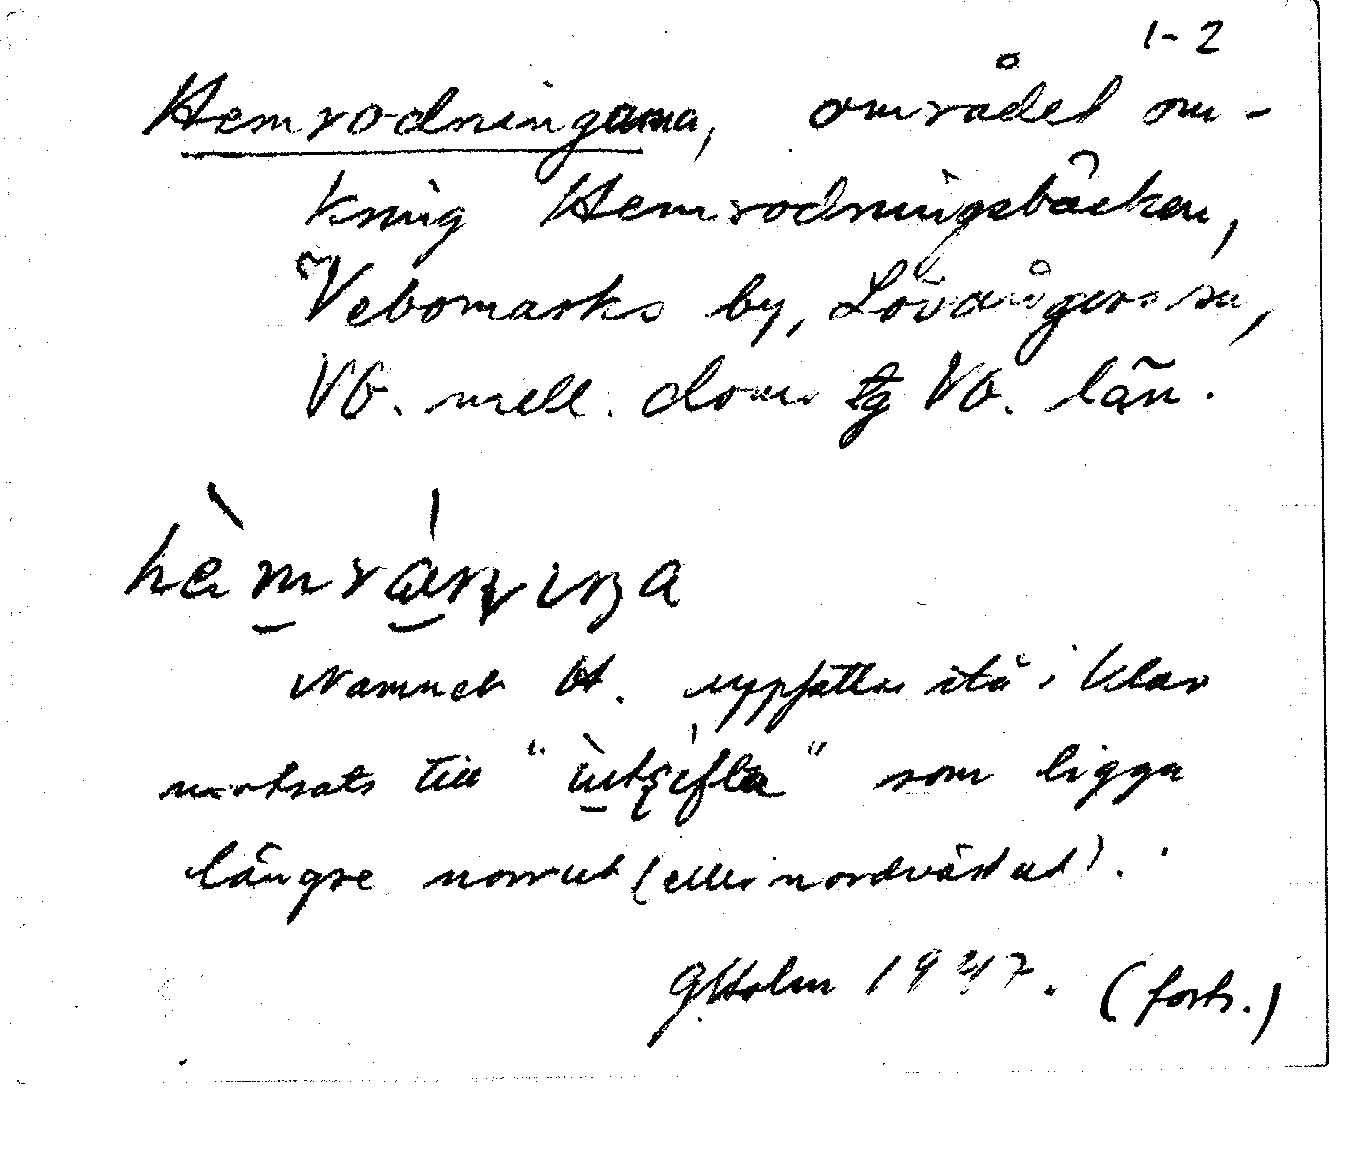 1-2
Hemrodningarna, området om-
kring Hemrodningsbäcken,
Vebomarks by, Lövångers sn,
VB. mell. doms tg VB. län.
Namnet H. uppfattas stå i klar
motsats till "      " som ligga
längre norrut (eller nordväst ut).
G Holm 1947. (forts.)